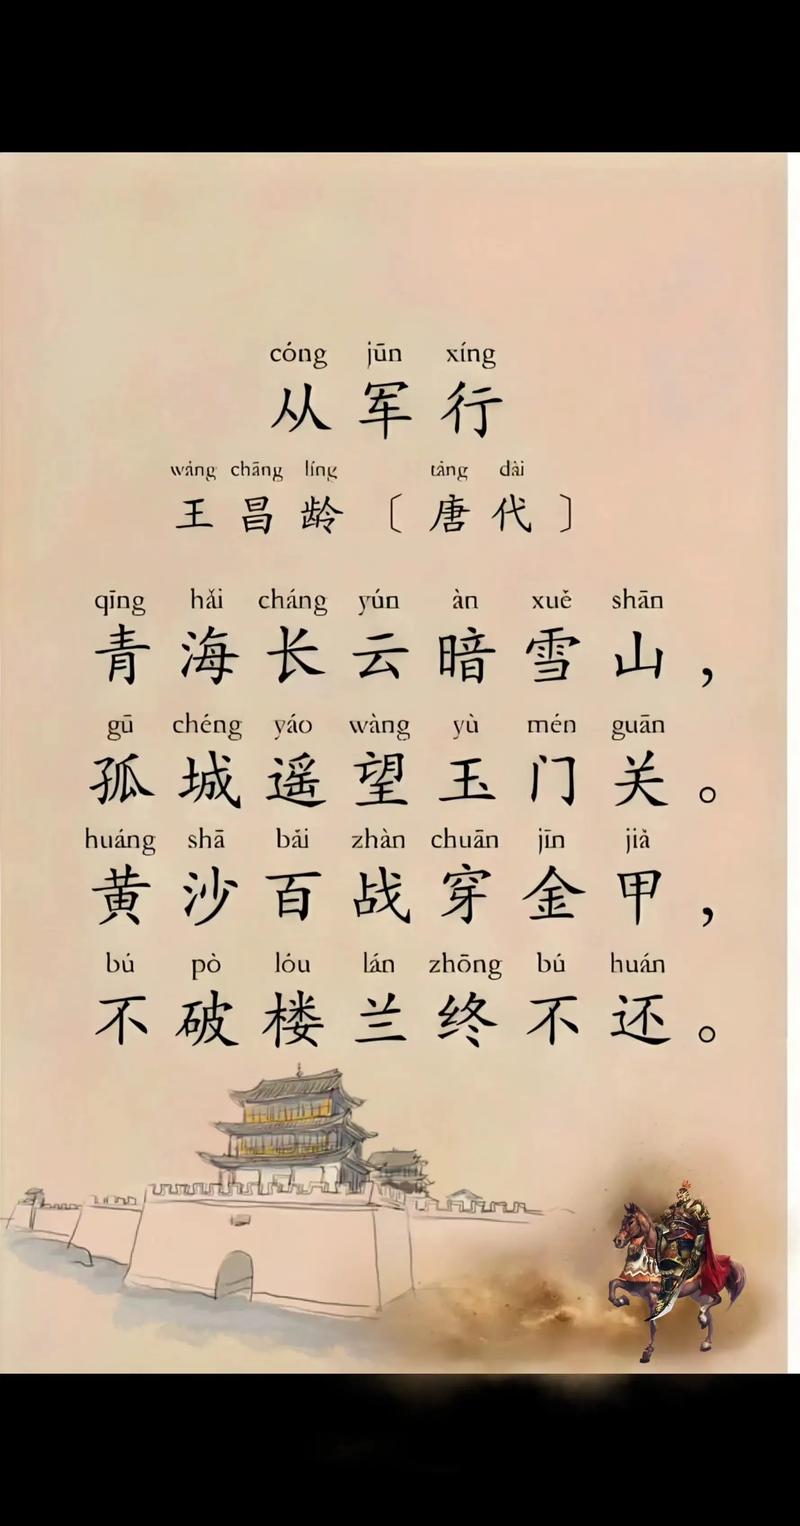 cóng jūn xíng
从军行
wáng chāng líng táng dài
王昌龄〔唐代〕
qīng hǎi cháng yún àn xuě shān
青海长云暗雪山，
gū chéng yáo wàng yù mén guān
孤城遥望玉门关。
huáng shā bǎi zhàn chuān jīn jiǎ
黄沙百战穿金甲，
bú pò lóu lán zhōng bú huán
不破楼兰终不还。